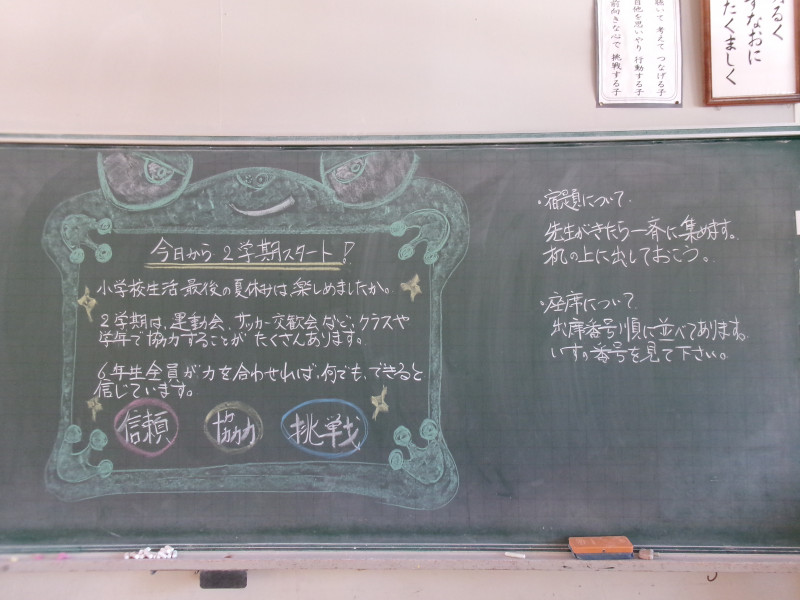 聴いて 考えて つなげる子
自他を思いやり 行動する子
前向きな心で 挑戦する子
るく
すなおに
たくましく
今日から 2学期スタート!
小学校生活最後の夏休みは、楽しめましたか。
2学期は、運動会、サッカー交歓会など、クラスや
学年で協力することが たくさんあります。
6年生全員が力を合わせれば、何でも、できると
信じています。
信頼 協力 挑戦
・宿題について
先生がきたら一斉に集めます。
机の上に出しておこう。
・座席について
出席番号順に並べてあります。
いすの番号を見て下さい。